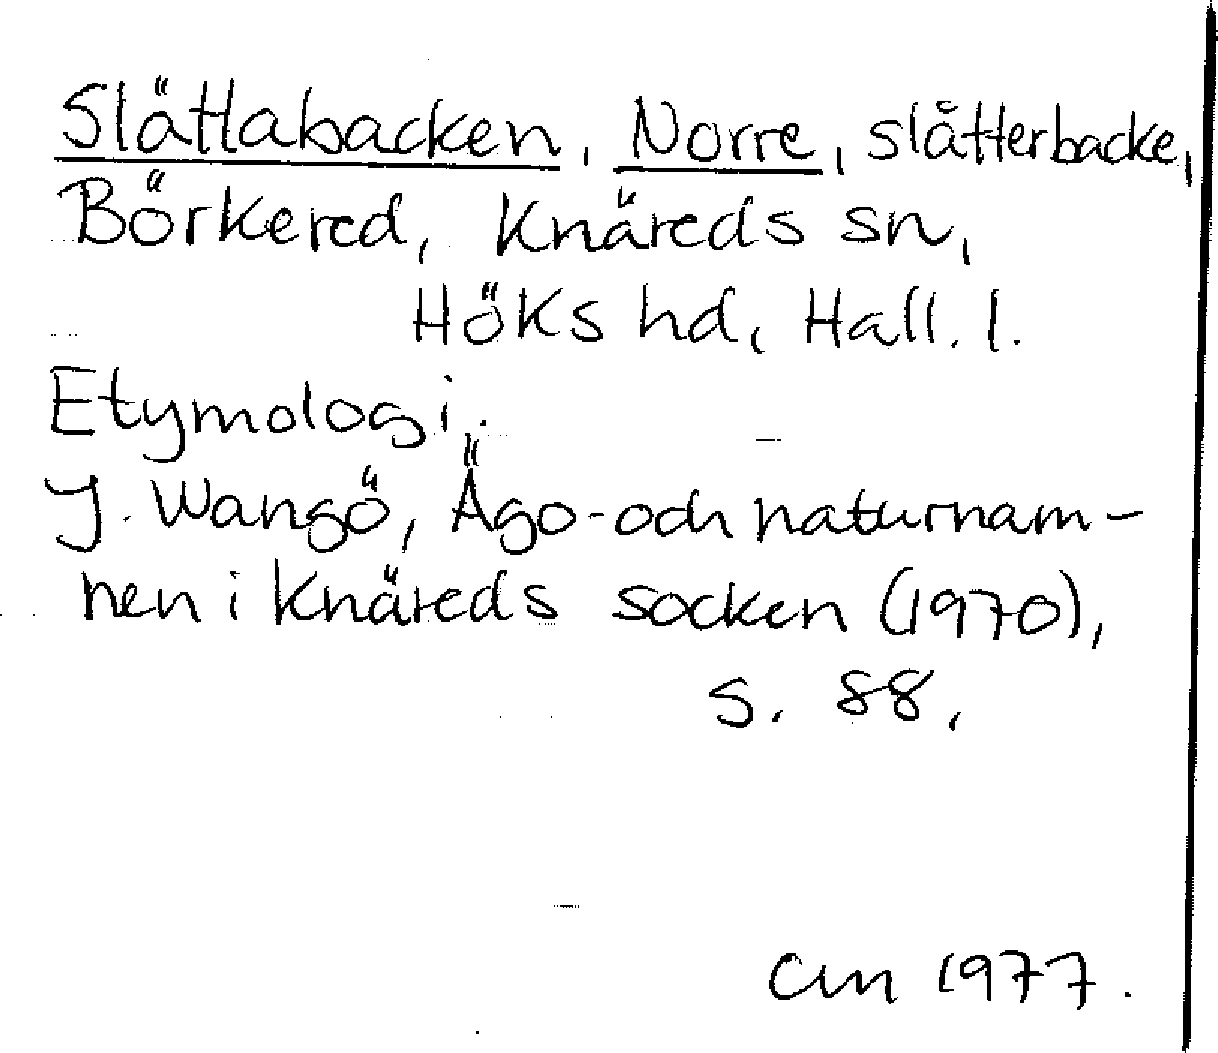 Slättabacken, Norre, slåtterbacke,
Börkered, Knäreds sn,
Höks hd, Hall. l.
Etymologi.
J. Wangö, Ägo- och naturnam-
nen i Knäreds socken (1970),
s. 88.
CM 1977.